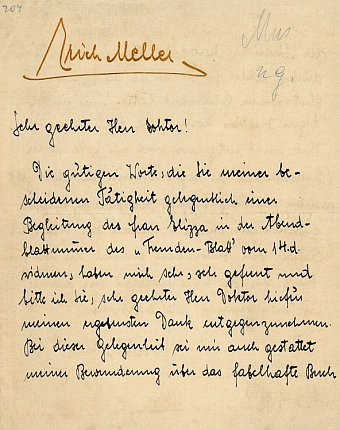 204
Mus
ng.
Erich Meller
Sehr geehrter Herr Doktor!
Die gütigen Worte, die Sie meiner be-
scheidenen Tätigkeit gelegentlich einer
Begleitung des Frau Elizza in der Abend-
blattnummer des „Fremden-Blatt" vom 14.d.
widmen, haben mich sehr, sehr gefreut und
bitte ich Sie, sehr geehrter Herr Doktor hiefür
meinen ergebensten Dank entgegenzunehmen.
Bei dieser Gelegenheit sei mir auch gestattet
meiner Bewunderung über das fabelhafte Buch